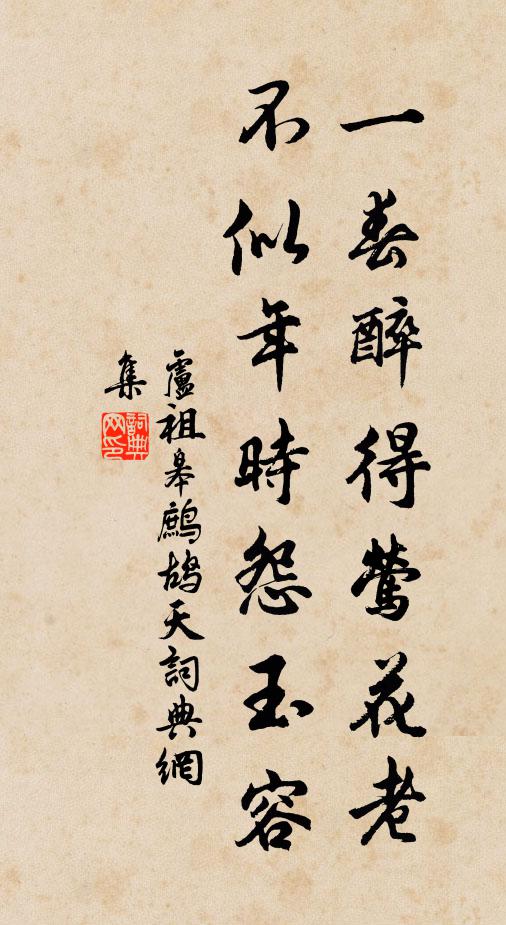 一春醉得鶯花老
不似年時怨玉容
盧祖皋鷓鴣天詞典網
集
詞典网印